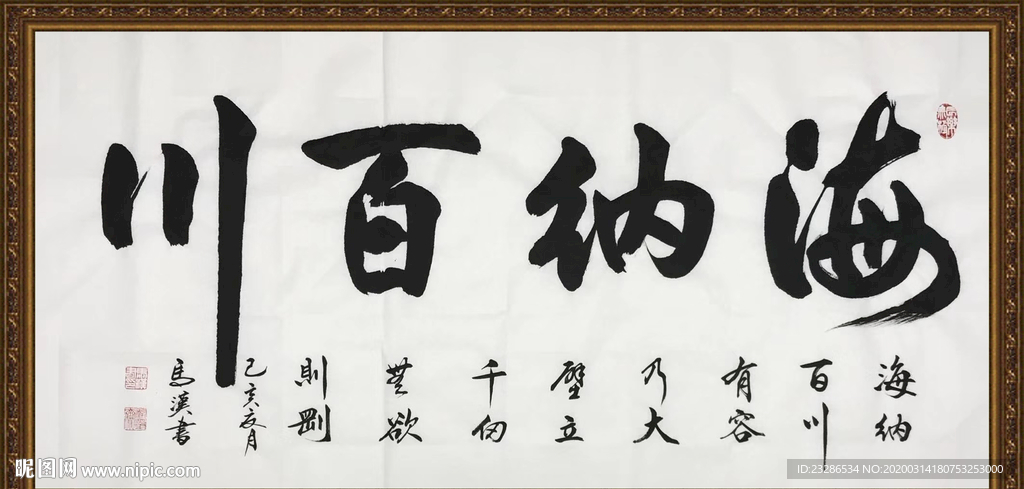 海納百川
海納
百川
有容
乃大
壁立
千仞
無欲
則剛
己亥夏月
馬書
昵图网 www.nipic.com
ID:23286534 NO:20200314180753253000